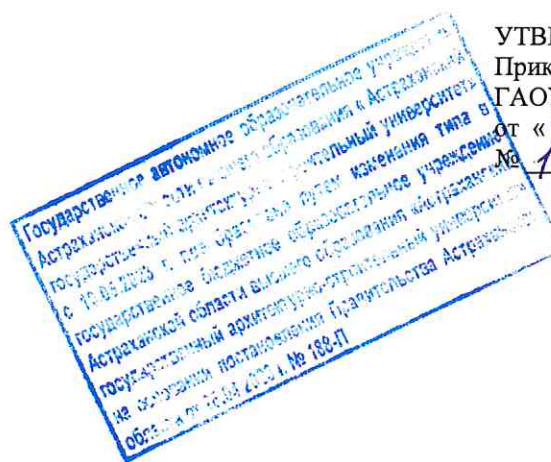 УТВ
Прик
ГАОУ
от «
№
Государственное автономное образовательное
Астраханской области высшего образования «Астраханский
государственный архитектурно-строительный университет»
с г. преобразован путем изменения типа в
государственное бюджетное образовательное учреждение
Астраханской области высшего образования «Астраханский
государственный архитектурно-строительный университет»
на основании постановления Правительства Астраханской
области от г. № 188-П